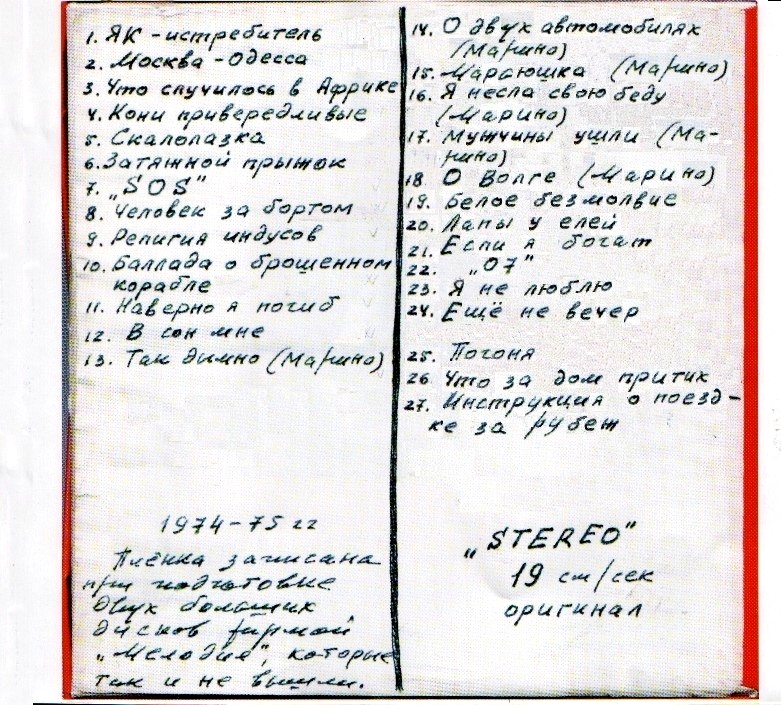 1. ЯК - истребитель
2. Москва - Одесса
3. Что случилось в Африке
4. Кони привередливые
5. Скалолазка
6. Затяжной прыжок
7. „SOS"
8. Человек за бортом
9. Религия индусов
10. Баллада о брошенном
корабле
11. Наверно я погиб
12. В сон мне
13. Так дымно (Марино)
1974-75 гг
Плёнка записана
при подготовке
двух больших
дисков фирмой
„Мелодия", которые
так и не вышли.
14. О двух автомобилях
(Марино)
15. Марьюшка (Марино)
16. Я несла свою беду
(Марино)
17. Мужчины ушли (Ма-
рино)
18 О Волге (Марино)
19. Белое безмолвие
20. Лапы у елей
21. Если я богат
22. „07"
23. Я не люблю
24. Ещё не вечер
25. Погоня
26. Что за дом притих
27. Инструкция о поезд-
ке за рубеж
„STEREO"
19 см/сек
оригинал